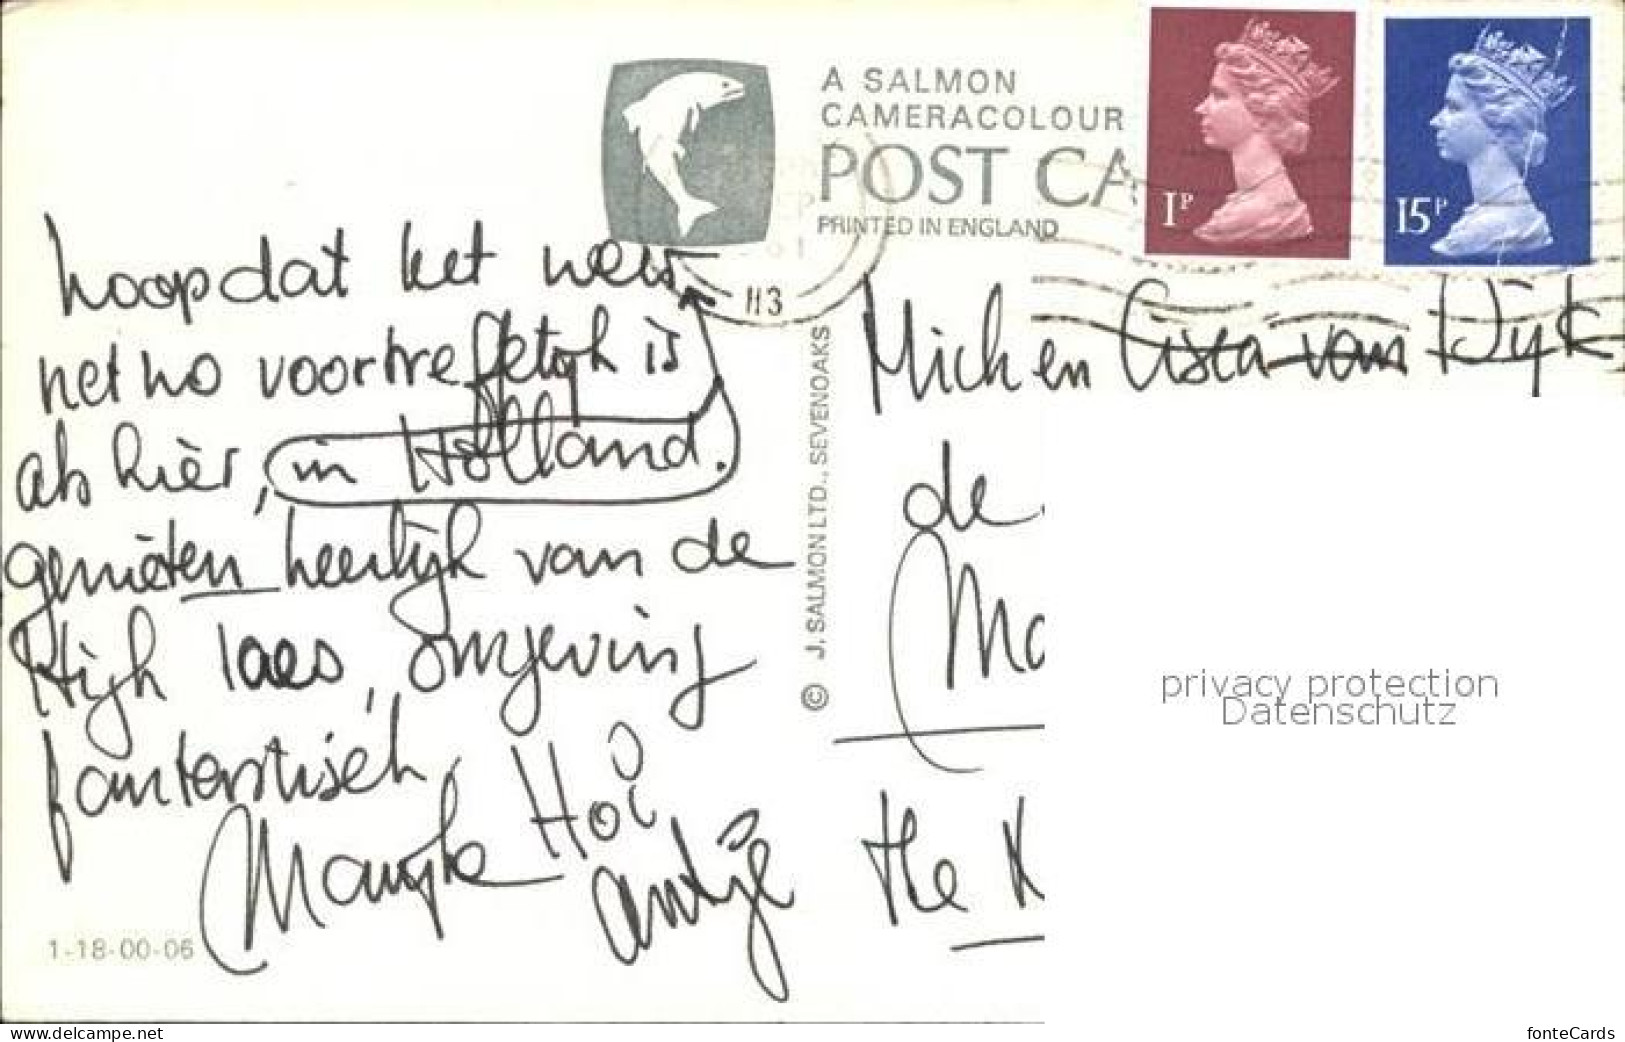 A SALMON
CAMERACOLOUR
POST CA
PRINTED IN ENGLAND
1P
15P
H3
hoop dat het weer
net zo voortreffelijk is
als hier, in Holland.
genieten heerlijk van de
High laes, omgeving
fantastisch,
Marijke Hoi
Antje
1-18-00-06
© J. SALMON LTD., SEVENOAKS
Mich en Cisca van Dijk
de
Ma
The N
privacy protection
Datenschutz
www.delcampe.net
fonteCards